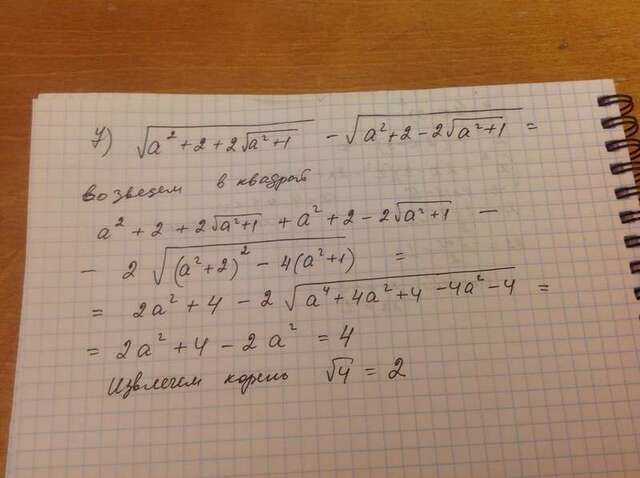 7) √(a² + 2 + 2√(a²+1)) - √(a² + 2 - 2√(a²+1)) =
возведем в квадрат
a² + 2 + 2√(a²+1) + a² + 2 - 2√(a²+1) -
- 2 √((a²+2)² - 4(a²+1)) =
= 2a² + 4 - 2 √(a⁴ + 4a² + 4 - 4a² - 4) =
= 2a² + 4 - 2a² = 4
Извлечем корень √4 = 2